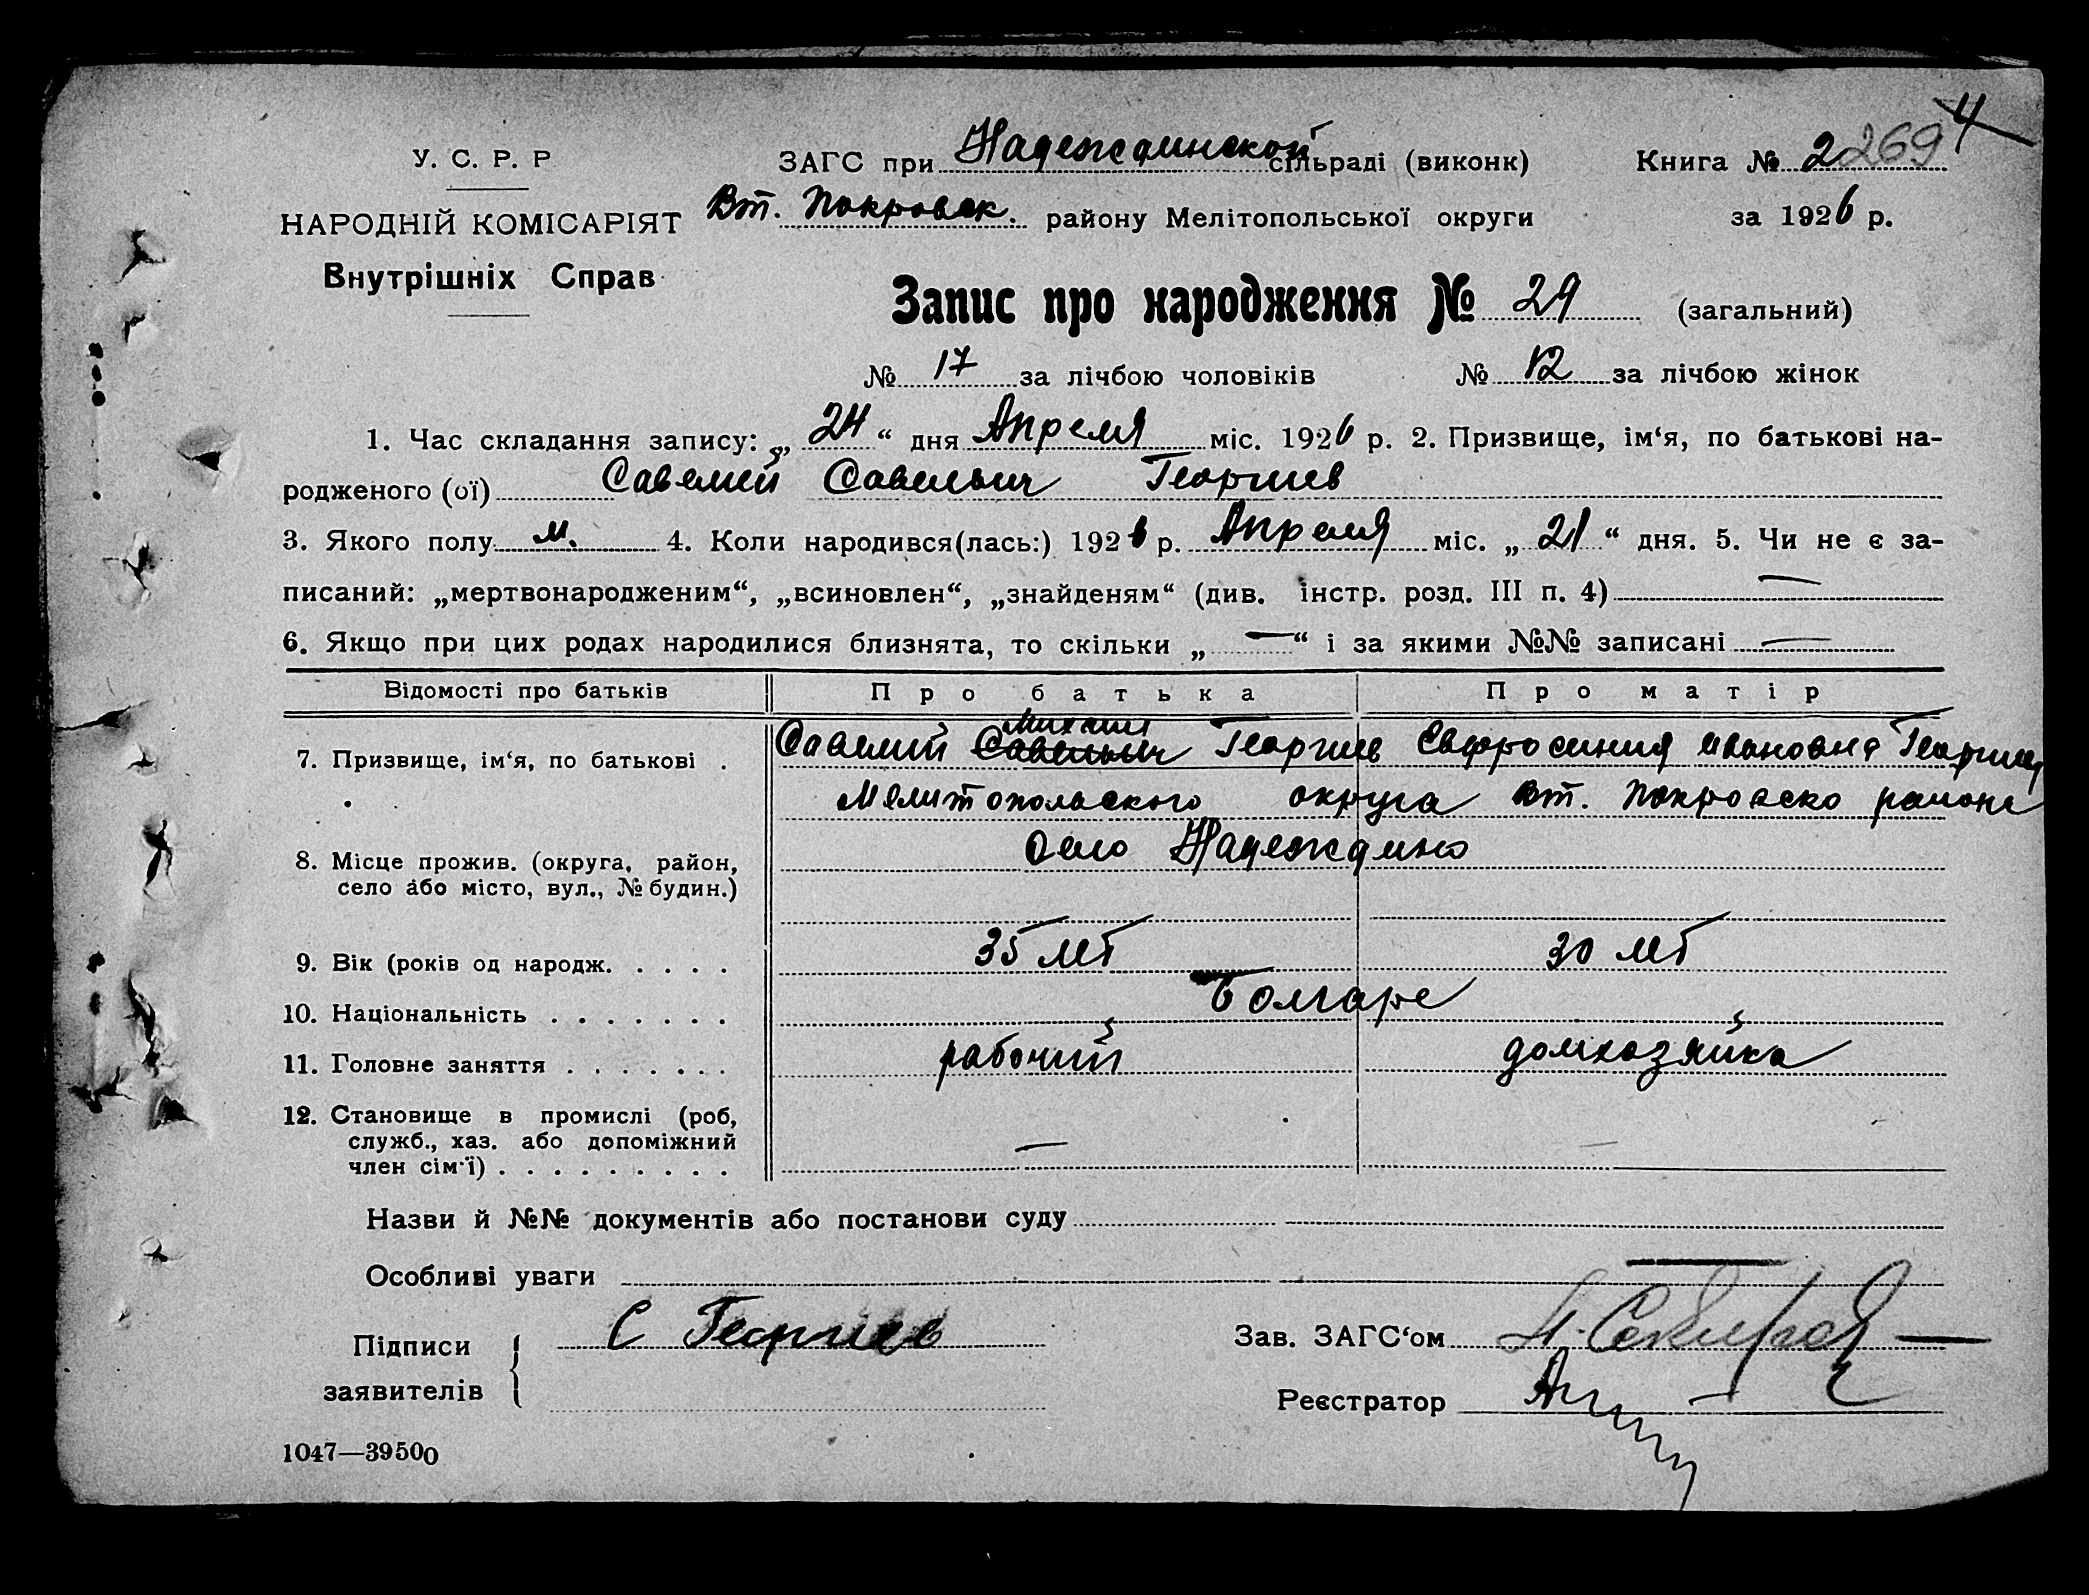 4
У. С. Р. Р
ЗАГС при Надеждинской сільраді (виконк)
Книга № 2 269
НАРОДНІЙ КОМІСАРІЯТ
Вт. Покровск. району Мелітопольської округи
за 1926 р.
Внутрішніх Справ
Запис про народження № 29 (загальний)
№ 17 за лічбою чоловіків № 12 за лічбою жінок
1. Час складання запису: „ 24 “ дня Апреля міс. 1926 р. 2. Призвище, ім‘я, по батькові на-
родженого (ої) Савелий Савельич Георгиев
3. Якого полу м. 4. Коли народився(лась:) 1926 р. Апреля міс. „ 21 “ дня. 5. Чи не є за-
писаний: „мертвонародженим“, „всиновлен“, „знайденям“ (див. інстр. розд. III п. 4) —
6. Якщо при цих родах народилися близнята, то скільки „ — “ і за якими №№ записані —
Відомості про батьків Про батька Про матір
Михаил
7. Призвище, ім‘я, по батькові . Савелий Савельич Георгиев Евфросиния Ивановна Георгиев
Мелитопольского округа Вт. Покровско района
село Надеждино
8. Місце прожив. (округа, район,
село або місто, вул., № будин.)
9. Вік (років од народж. . . . . 35 лет 30 лет
10. Національність . . . . . . . Болгаре
11. Головне заняття . . . . . . . рабочий домхозяйка
12. Становище в промислі (роб,
служб., хаз. або допоміжний
член сім‘ї) . . . . . . . . . — —
Назви й №№ документів або постанови суду
Особливі уваги
Підписи
заявителів
С Георгиев
Зав. ЗАГС‘ом
Реєстратор
1047—39500